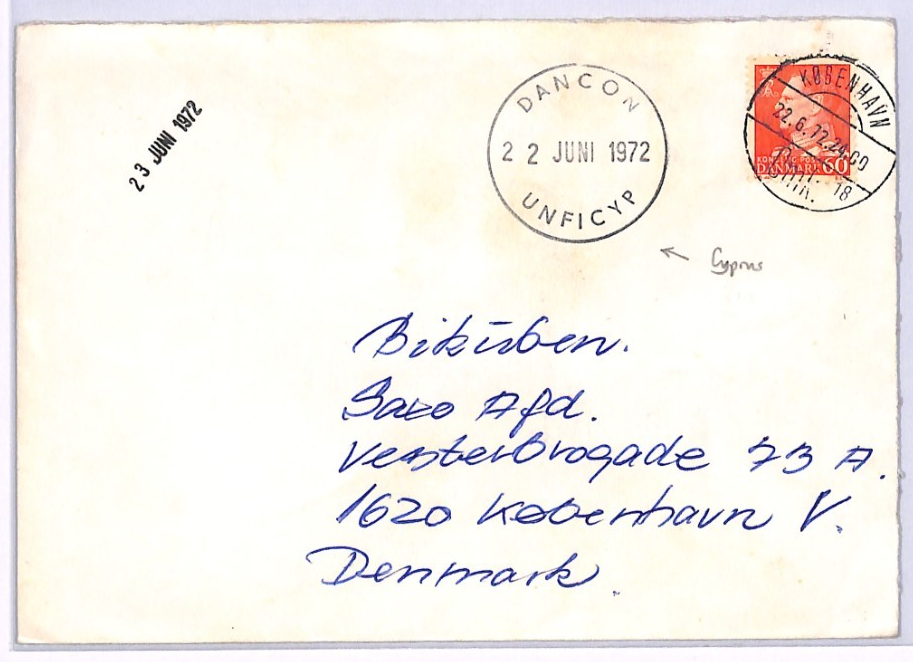 23 JUNI 1972
DANCON
22 JUNI 1972
UNFICYP
KØBENHAVN
22.6.72.24.00
OMK. 18
KONGELIG POST
DANMARK 60
← Cyprus
Bikuben.
Saxo Afd.
Vesterbrogade 73 A.
1620 København V.
Denmark